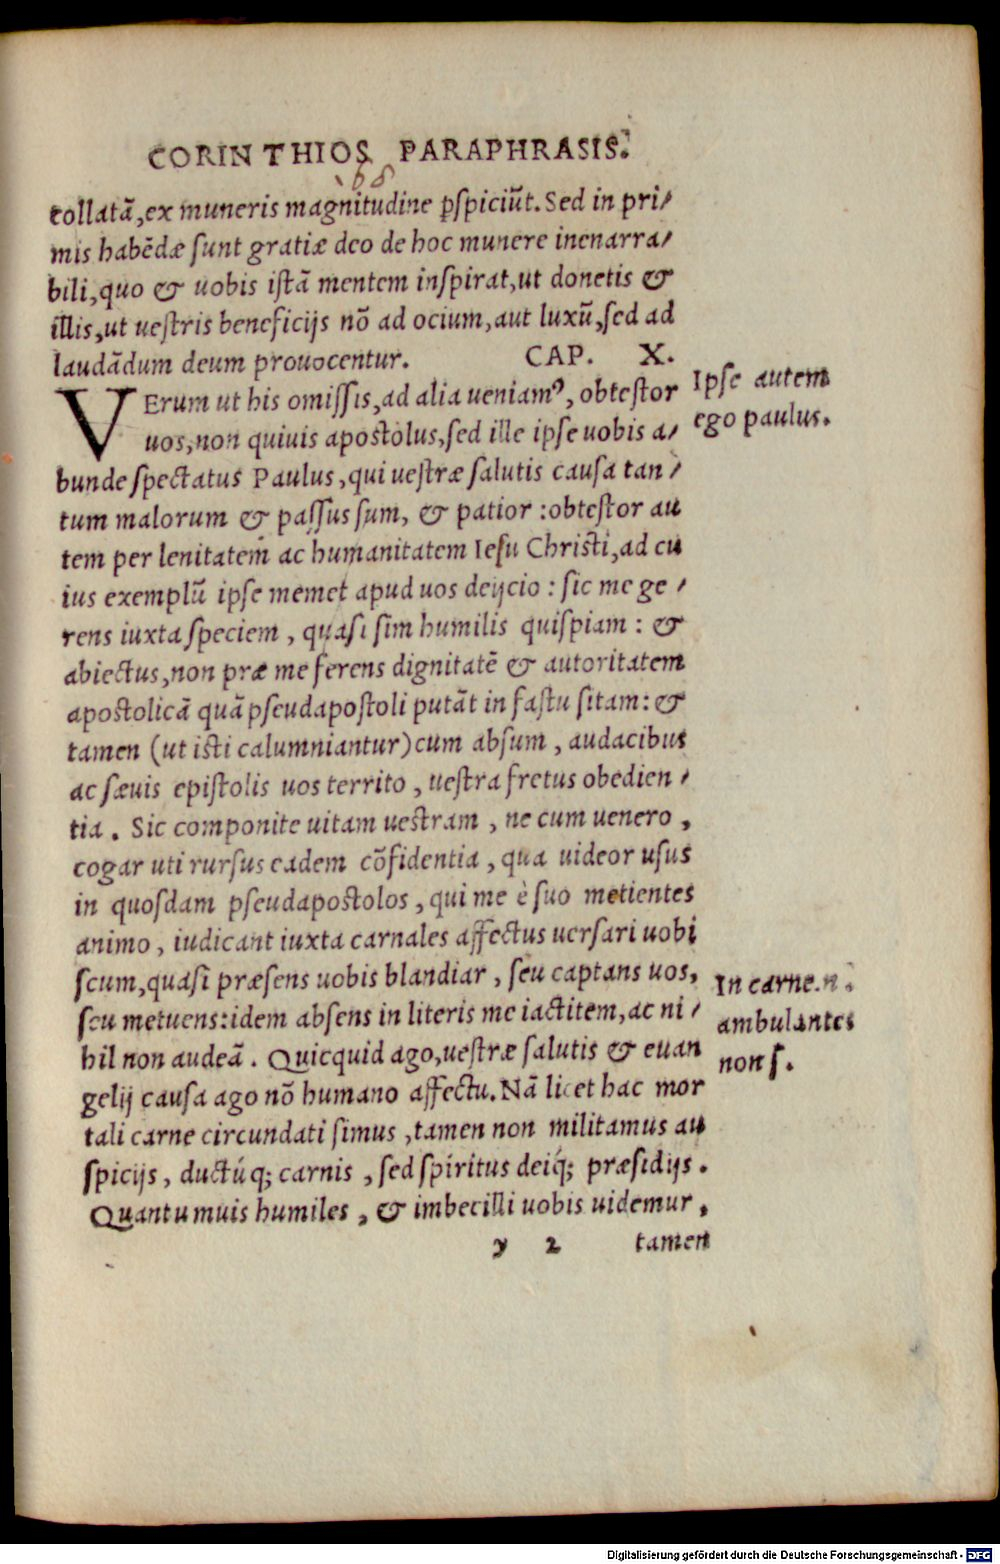 CORINTHIOS PARAPHRASIS.
collatā, ex muneris magnitudine ꝑspiciūt. Sed in pri/
mis habēdæ sunt gratiæ deo de hoc munere inenarra/
bili, quo & uobis istā mentem inspirat, ut donetis &
illis, ut uestris beneficijs nō ad ocium, aut luxū, sed ad
laudādum deum prouocentur. CAP. X.
VErum ut his omissis, ad alia ueniamꝰ, obtestor
Ipse autem
uos, non quiuis apostolus, sed ille ipse uobis a/
ego paulus.
bunde spectatus Paulus, qui uestræ salutis causa tan/
tum malorum & passus sum, & patior: obtestor au
tem per lenitatem ac humanitatem Iesu Christi, ad cu
ius exemplū ipse memet apud uos deijcio: sic me ge/
rens iuxta speciem, quasi sim humilis quispiam: &
abiectus, non præ me ferens dignitatē & autoritatem
apostolicā quā pseudapostoli putāt in fastu sitam: &
tamen (ut isti calumniantur) cum absum, audacibus
ac sæuis epistolis uos territo, uestra fretus obedien/
tia. Sic componite uitam uestram, ne cum uenero,
cogar uti rursus eadem cōfidentia, qua uideor usus
in quosdam pseudapostolos, qui me è suo metientes
animo, iudicant iuxta carnales affectus uersari uobi
scum, quasi præsens uobis blandiar, seu captans uos,
In carne.n.
seu metuens: idem absens in literis me iactitem, ac ni/
ambulantes
hil non audeā. Quicquid ago, uestræ salutis & euan
non s.
gelij causa ago nō humano affectu. Nā licet hac mor
tali carne circundati simus, tamen non militamus au
spicijs, ductúq; carnis, sed spiritus deiq́; præsidijs.
Quantumuis humiles, & imbecilli uobis uidemur,
y 2 tamen
Digitalisierung gefördert durch die Deutsche Forschungsgemeinschaft - DFG